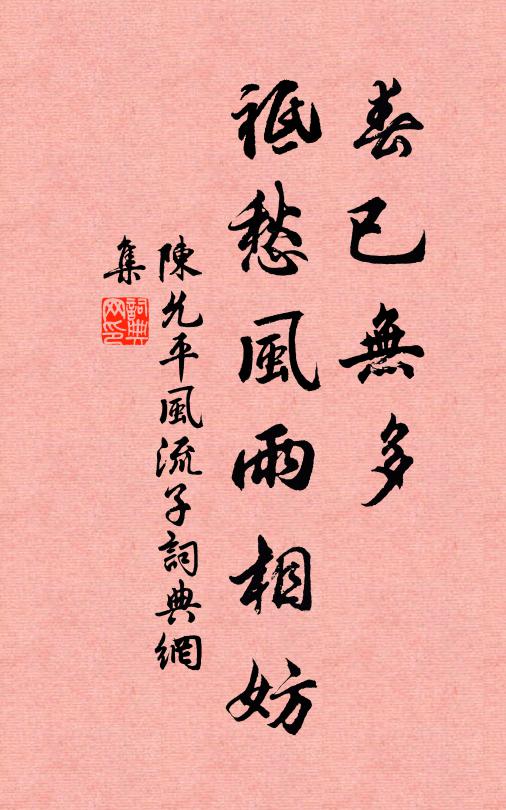 春已無多
祗愁風雨相妨
陳允平風流子詞典網
集
詞典網印